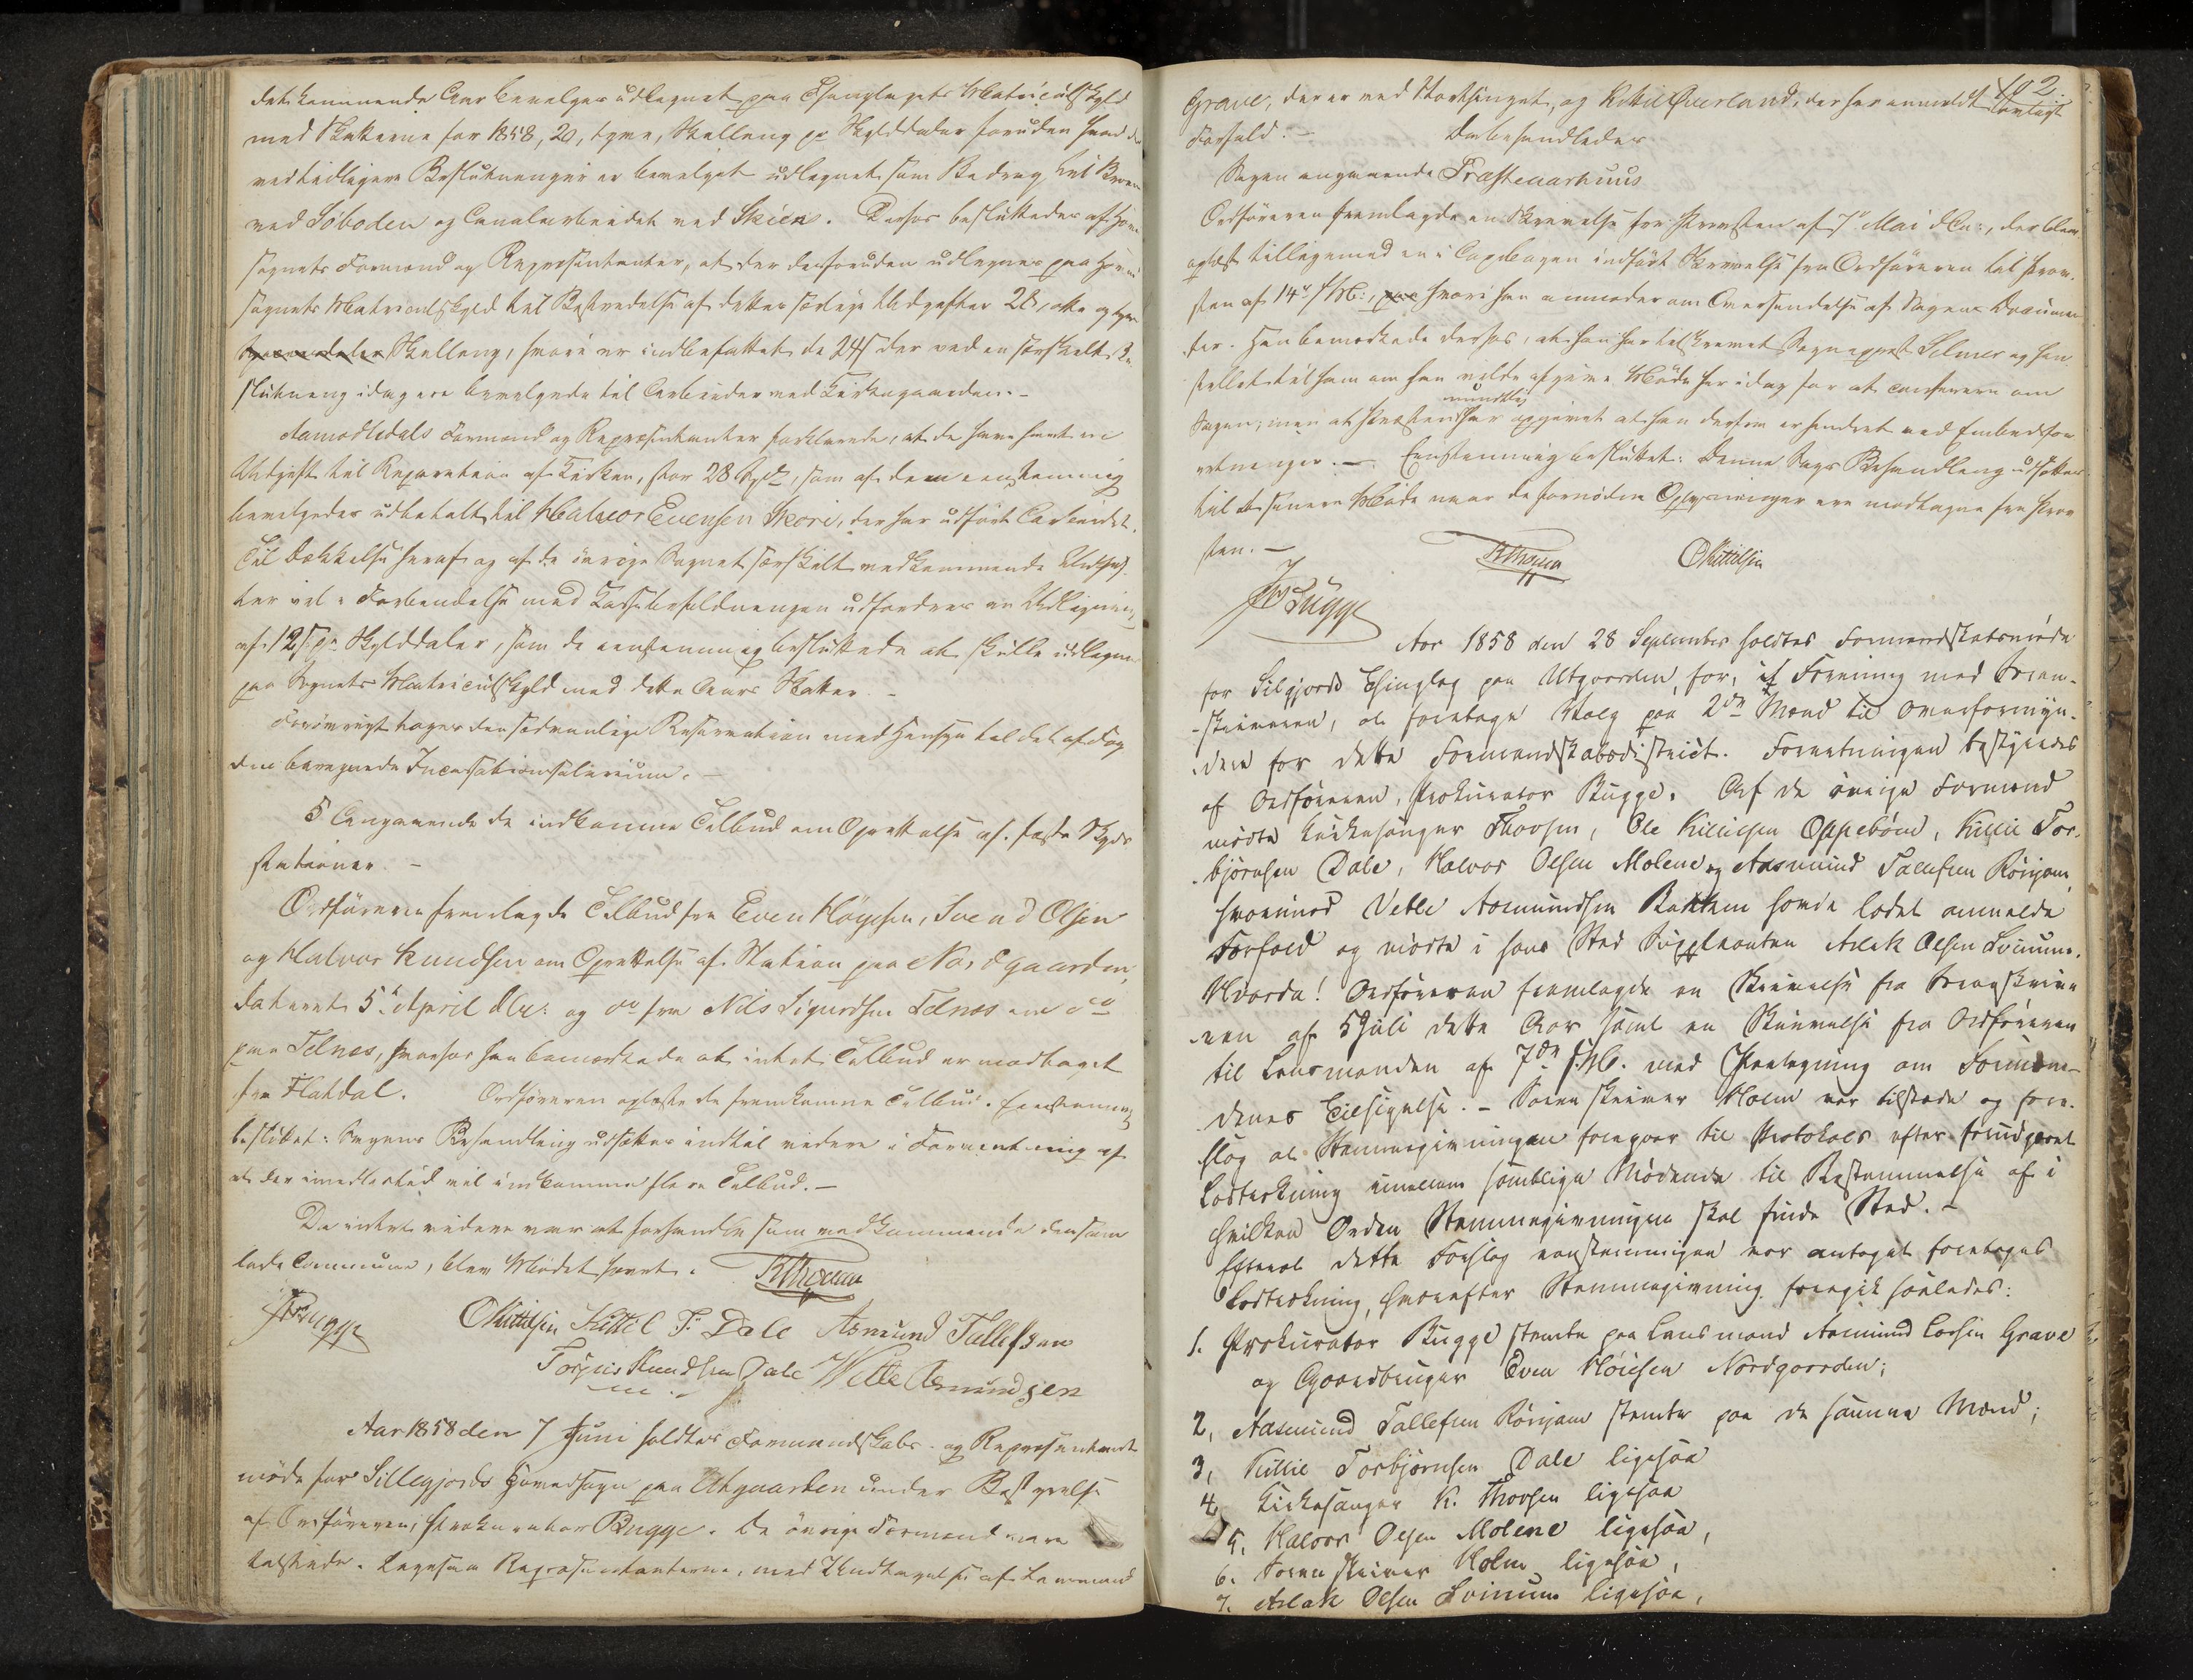 det kommende Aar bevilges udlignet paa Thinglagets Matriculskyld
med Skatterne for 1858, 20, tyve, Skilling pr Skylddaler foruden hvad der
ved tidligere Beslutninger er bevilget udlignet som Bidrag til Broen
ved Söboden og Canalarbeidet ved Skien. Derhos besluttedes af Hoved
sognets Formænd og Repræsentanter, at der desforuden udlignes paa Hoved
sognets Matriculskyld til Bestridelse af dettes særlige Udgifter 28, otte og tyve
Skilling, hvori er indbefattet de 24 ß der ved en særskilt Be
slutning idag ere bevilgede til Arbeider ved Kirkegaarden. -
Aamodtsdals Formænd og Repræsentanter forklarede, at de have havt en
Udgift til Reparation af Kirken, stor 28 Spd, som af dem eenstemmig
bevilgedes udbetalt til Halvor Evensen Skori, der har udført Arbeidet.
Til Dækkelse heraf og af de øvrige Sognet særskilt vedkommende Udgif-
ter vil i Forbindelse med Kassebeholdningen udfordres en Udligning
af 12 ß pr Skylddaler, som de eenstemmig besluttede at skulle udlignes
paa Sognets Matriculskyld med dette Aars Skatter. -
Forøvrigt tages den sædvanlige Reservation med Hensyn til det af Fog
den beregnede Incassationssalarium. -
5 Angaaende de indkomne Tilbud om Oprettelse af faste Skyds
stationer. -
Ordføreren fremlagde Tilbud fra Even Höyesen, Svend Olsen
og Halvor Knudsen om Oprettelse af Station paa Nordgaarden,
dateret 5te April d.A. og do fra Nils Sigurdsen Telnes om do
paa Telnes, hvorhos han bemærkede at intet Tilbud er modtaget
fra Flatdal. Ordføreren oplæste de fremkomne Tilbud. Eenstemmig
besluttet: Sagens Behandling udsættes indtil videre i Forventning af
at der imidlertid vil indkomme flere Tilbud. -
Da intet videre var at forhandle som vedkommende den sam
lede Commune, blev Mødet hævet. KThorsen
JBugge OKittilsen Kittil T. Dale Asmund Tallefsen
Torjus Knudsen Dale Vetle Asmundsen
Aar 1858 den 7 Juni holdtes Formandskabs- og Repræsentant
møde for Sillegjords Hovedsogn paa Utgaarden under Bestyrelse
af Ordføreren, Prokurator Bugge. De øvrige Formænd vare
tilstede. Ligesaa Repræsentanterne, med Undtagelse af Lensmand
102.
Grave, der er ved Storthinget, og Kittil Qverland, der har anmeldt lovligt
Forfald. - Da behandledes
Sagen angaaende Præsteenkehuus
Ordføreren fremlagde en Skrivelse fra Provsten af 7de Mai d.A., der blev
oplæst tilligemed en i Copibogen indført Skrivelse fra Ordføreren til Prov-
sten af 14de s.M., hvori han anmoder om Oversendelse af Sagens Documen-
ter. Han bemærkede derhos, at han har tilskrevet Sognepræst Selmer og hen
stillet til ham om han vilde afgive Møde her idag for at conferere om
Sagen; men at Præsten mundtlig har opgivet at han derfra er hindret ved Embedsfor
retninger. - Eenstemmig besluttet: Denne Sags Behandling udsættes
til et senere Møde naar de fornødne Oplysninger ere modtagne fra Prov
sten. -
KThorsen OKittilsen
JBugge
Aar 1858 den 28 September holdtes Formandskabsmøde
for Silgjords Thinglag paa Utgaarden, for, i Forening med Soren-
-skriveren, at foretage Valg paa 2de Mænd til Overformyn-
-dere for dette Formandskabsdistrict. Forretningen bestyredes
af Ordføreren, Prokurator Bugge. Af de øvrige Formænd
mødte Kirkesanger Thorsen, Ole Kittilsen Oppebøen, Kittil Tor-
-bjørnsen Dale, Halvor Olsen Molene og Aasmund Tallefsen Rønjom,
hvorimod Vetle Asmundsen Bakken havde ladet anmelde
Forfald og mødte i hans Sted Suppleanten Aslak Olsen Lønnum.
Hvorda! Ordføreren fremlagde en Skrivelse fra Sorenskrive
-ren af 5 Juli dette Aar samt en Skrivelse fra Ordføreren
til Lensmanden af 7de s.M. med Paategning om Formæn-
denes Tilsigelse. - Sorenskriver Holm var tilstede og fore-
slog at Stemmegivningen foregaar til Protokols efter foretaget
Lodtrækning imellem samtlige Mødende til Bestemmelse af i
hvilken Orden Stemmegivningen skal finde Sted. -
Efterat dette Forslag eenstemmigen var antaget foretoges
Lodtrækning, hvorefter Stemmegivning foregik saaledes:
1. Prokurator Bugge stemte paa Lensmand Asmund Larsen Grave
og Gaardbruger Even Høiesen Nordgaarden;
2, Aasmund Tallefsen Rønjom stemte paa de samme Mænd;
3, Kittil Torbjørnsen Dale ligesaa
4, Kirkesanger K. Thorsen ligesaa
5, Halvor Olsen Molene ligesaa,
6. Sorenskriver Holm ligesaa,
7. Aslak Olsen Lønnum ligesaa,